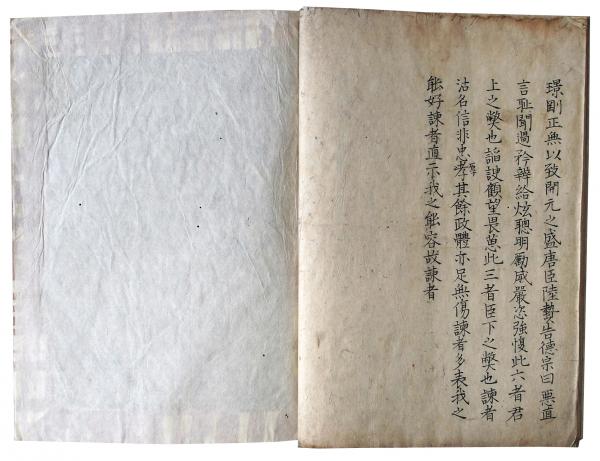 璟剛正無以致開元之盛唐臣陸贄告德宗曰惡直
言恥聞過矜辯給炫聰明勵威嚴恣強愎此六者君
上之獘也諂諛顧望畏葸此三者臣下之獘也諫者
沽名信非忠孝其餘政體亦足無傷諫者多表我之
能好諫者直示我之能容故諫者